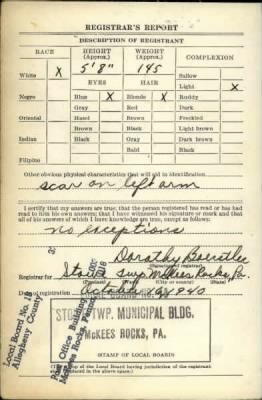 REGISTRAR'S REPORT
DESCRIPTION OF REGISTRANT
RACE
HEIGHT (Approx.)
WEIGHT (Approx.)
COMPLEXION
White X
5' 8"
145
Sallow
EYES
HAIR
Light X
Negro
Blue X
Blonde X
Ruddy
Gray
Red
Dark
Oriental
Hazel
Brown
Freckled
Brown
Black
Light brown
Indian
Black
Gray
Dark brown
Bald
Black
Filipino
Other obvious physical characteristics that will aid in identification
scar on left arm
I certify that my answers are true; that the person registered has read or has had
read to him his own answers; that I have witnessed his signature or mark and that
all of his answers of which I have knowledge are true, except as follows:
no exceptions
Dorothy
Registrar for Stowe Twp. McKees Rocks, Pa.
(Precinct) (City or county) (State)
Date of registration October 1940
STOWE TWP. MUNICIPAL BLDG.
McKEES ROCKS, PA.
STAMP OF LOCAL BOARD
(The stamp of the Local Board having jurisdiction of the registrant
shall be placed in the above space.)
Local Board No. 19
Allegheny County
Post Office Building
McKees Rocks, Penna.